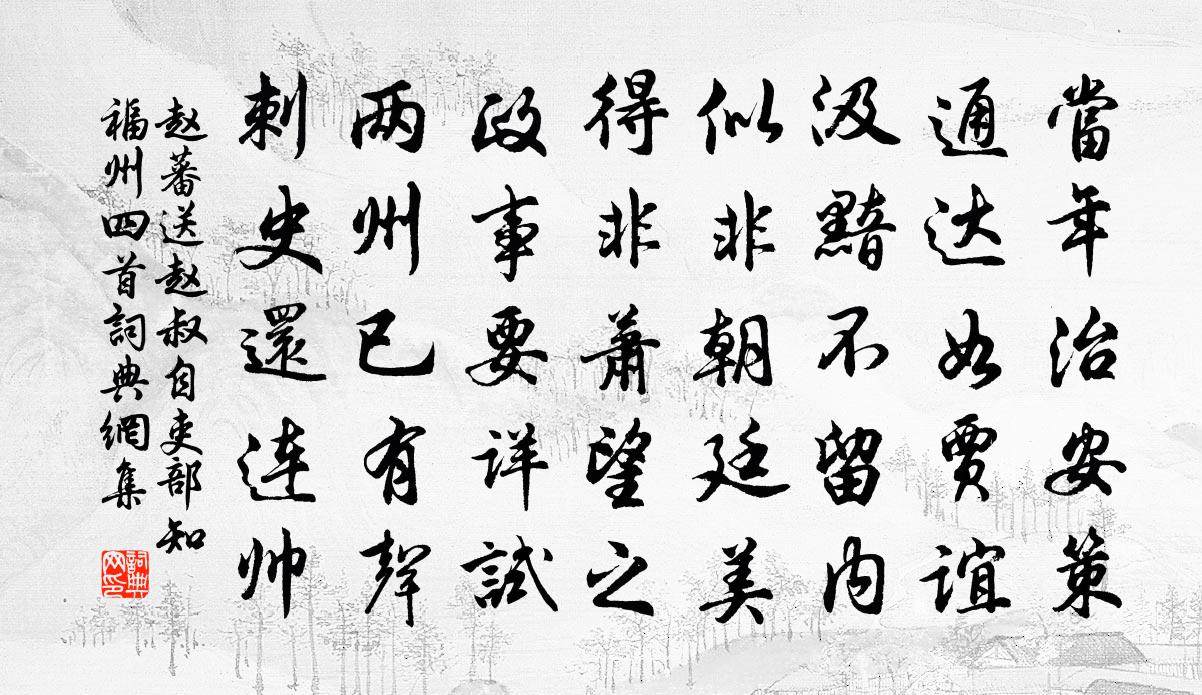 當年治安策
通达如贾谊
汲黯不留内
似非朝廷美
得非萧望之
政事要详試
两州已有聲
刺史還连帅
赵蕃送赵叔自吏部知
福州四首詞典網集
詞典网印